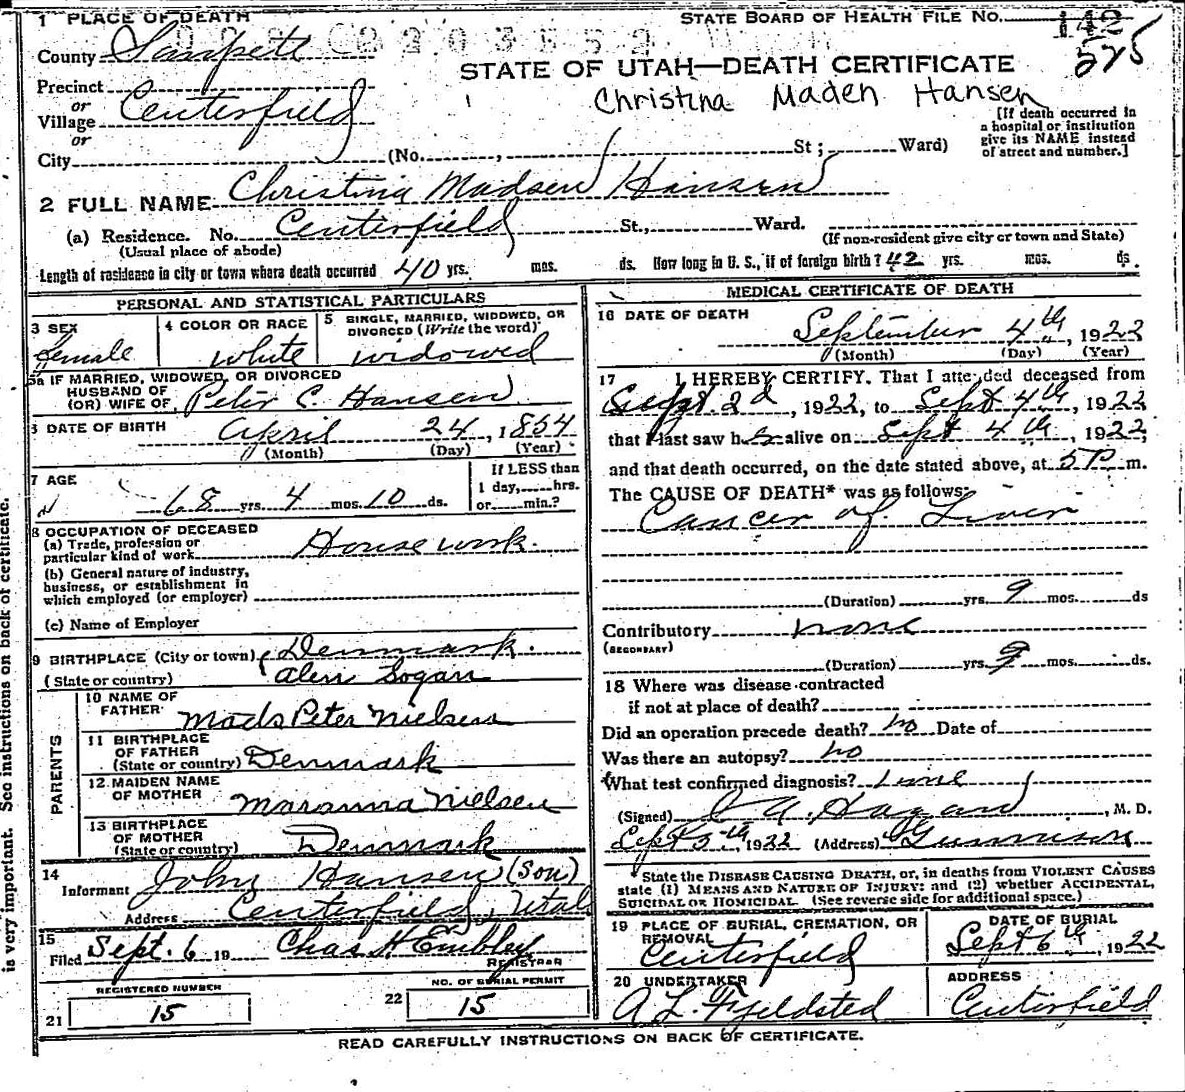 1 PLACE OF DEATH
STATE BOARD OF HEALTH FILE NO. 142
525
County Sanpete
STATE OF UTAH—DEATH CERTIFICATE
Precinct
Christina Maden Hansen
or
Village Centerfield
or
[If death occurred in
a hospital or institution
give its NAME instead
of street and number.]
City (No. , St; Ward)
2 FULL NAME Christina Madsen Hansen
(a) Residence. No. Centerfield St., Ward.
(Usual place of abode) (If non-resident give city or town and State)
Length of residence in city or town where death occurred 40 yrs. mos. ds. How long in U. S., if of foreign birth? 42 yrs. mos. ds.
PERSONAL AND STATISTICAL PARTICULARS
3 SEX
female
4 COLOR OR RACE
White
5 SINGLE, MARRIED, WIDOWED, OR
DIVORCED (Write the word)
widowed
5a IF MARRIED, WIDOWED, OR DIVORCED
HUSBAND OF
(OR) WIFE OF Peter C. Hansen
6 DATE OF BIRTH April 24, 1854
(Month) (Day) (Year)
7 AGE
68 yrs. 4 mos. 10 ds.
If LESS than
1 day, hrs.
or min.?
8 OCCUPATION OF DECEASED
(a) Trade, profession or
particular kind of work Housework.
(b) General nature of industry,
business, or establishment in
which employed (or employer)
(c) Name of Employer
9 BIRTHPLACE (City or town) Denmark.
(State or country)
PARENTS
10 NAME OF
FATHER Mads Peter Nielsen
11 BIRTHPLACE
OF FATHER
(State or country) Denmark
12 MAIDEN NAME
OF MOTHER Maranna Nielsen
13 BIRTHPLACE
OF MOTHER
(State or country) Denmark
14
Informant John Hansen (Son)
Address Centerfield, Utah
15
Filed Sept. 6 19 Chas H Embley
REGISTRAR
REGISTERED NUMBER
21 15
NO. OF BURIAL PERMIT
22 15
MEDICAL CERTIFICATE OF DEATH
16 DATE OF DEATH
September 4th, 1922
(Month) (Day) (Year)
17 I HEREBY CERTIFY, That I attended deceased from
Sept. 2d, 1922, to Sept 4th, 1922
that I last saw h alive on Sept 4th, 1922,
and that death occurred, on the date stated above, at 5 P. m.
The CAUSE OF DEATH* was as follows:
Cancer of Liver
(Duration) yrs. 9 mos. ds
Contributory none
(SECONDARY)
(Duration) yrs. 9 mos. ds.
18 Where was disease contracted
if not at place of death?
Did an operation precede death? no Date of
Was there an autopsy? no
What test confirmed diagnosis?
(Signed) Hagan, M. D.
Sept 5th, 1922 (Address) Gunnison
* State the DISEASE CAUSING DEATH, or, in deaths from VIOLENT CAUSES
state (1) MEANS AND NATURE OF INJURY; and (2) whether ACCIDENTAL,
SUICIDAL OR HOMICIDAL. (See reverse side for additional space.)
19 PLACE OF BURIAL, CREMATION, OR
REMOVAL
Centerfield
DATE OF BURIAL
Sept 6th, 1922
20 UNDERTAKER
A L Fjeldsted
ADDRESS
Centerfield
READ CAREFULLY INSTRUCTIONS ON BACK OF CERTIFICATE.
is very important. See instructions on back of certificate.